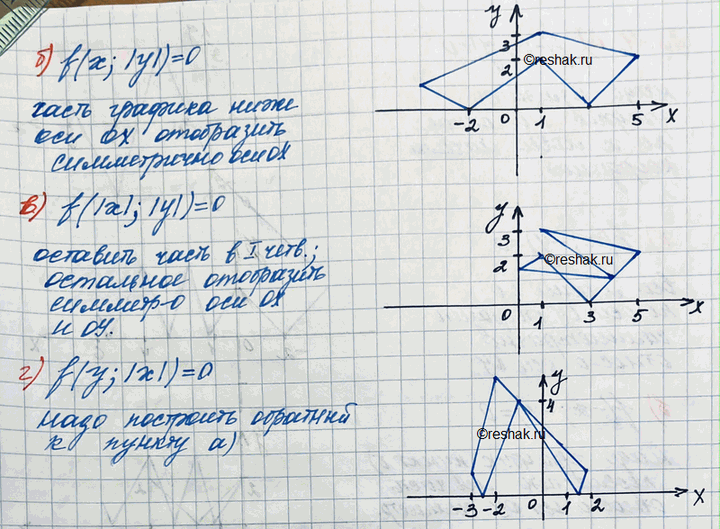 б) f(x; |y|)=0
часть графика ниже
оси ОХ отобразить
симметрично оси ОХ
y
3
2
©reshak.ru
-2 0 1 5 x
в) f(|x|; |y|)=0
оставить часть в I четв.;
остальное отобразить
симметр-о оси ОХ
и ОУ.
y
3
2
©reshak.ru
0 1 3 5 x
г) f(y; |x|)=0
надо построить обратный
к пункту а)
y
4
©reshak.ru
-3 -2 0 1 2 x